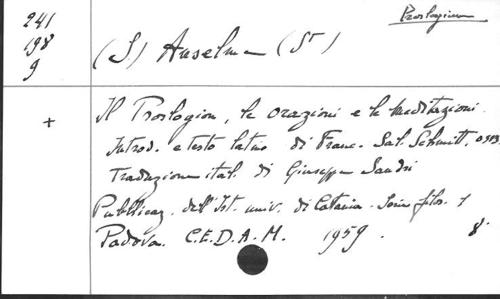 241
198
9
Proslogion
(S) Anselmo (St)
+
Il Proslogion, le orazioni e le meditazioni.
Introd. e testo latino di Franc. Sal. Schmitt, O.S.B.
Traduzione ital. di Giuseppe Sandri
Pubblicaz. dell'Ist. univ. di Catania. Serie filos. 1
Padova. C.E.D.A.M. 1959. 8°